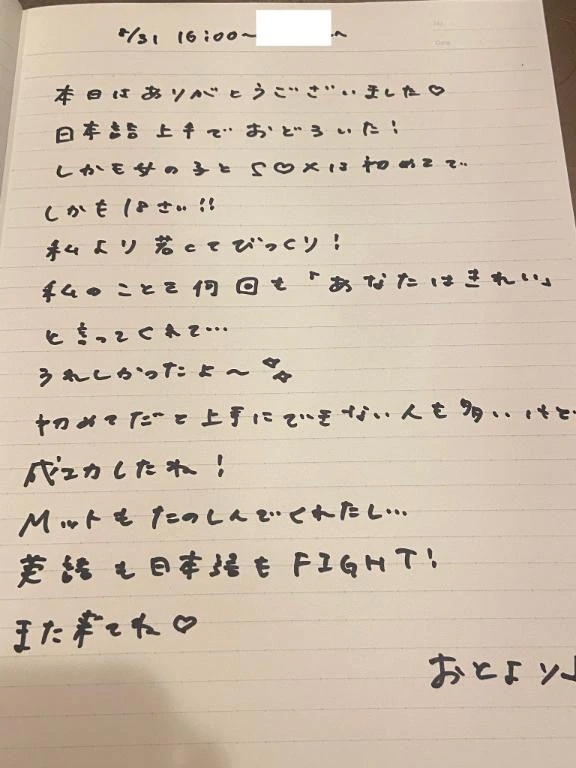 No.
Date
5/31 16:00~ へ
本日はありがとうございました♡
日本語上手でおどろいた!
しかも女の子とS♡Xは初めてで
しかも18さい!!
私より若くてびっくり!
私のことを何回も「あなたはきれい」
と言ってくれて…
うれしかったよ〜
初めてだと上手にできない人も多いけど…
成功したね!
Mットもたのしんでくれたし…
英語も日本語もFIGHT!
また来てね♡
おとより♪